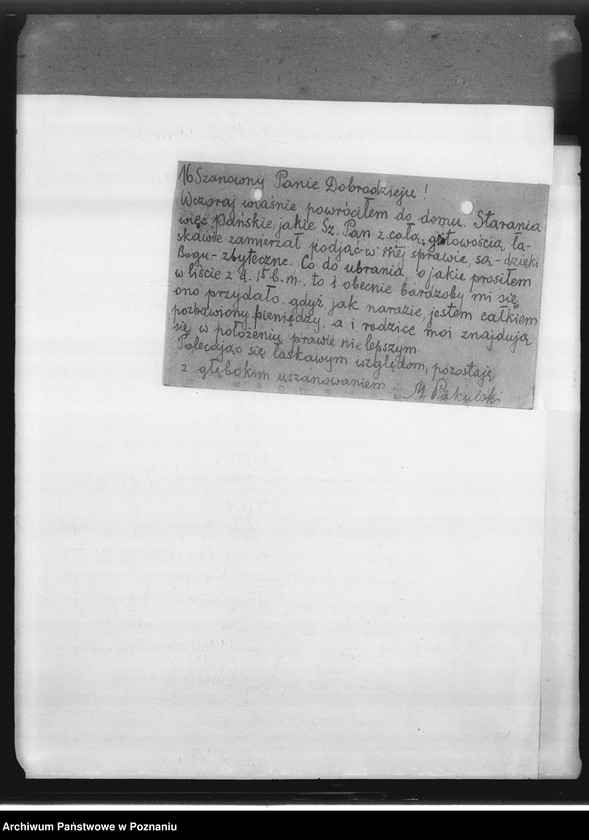 16 Szanowny Panie Dobrodzieju!
Wczoraj właśnie powróciłem do domu. Starania
więc Pańskie, jakie Sz. Pan z całą gotowością ła-
skawie zamierzał podjąć w mej sprawie, są - dzięki
Bogu - zbyteczne. Co do ubrania, o jakie prosiłem
w liście z d. 15 b. m., to i obecnie bardzoby mi się
ono przydało gdyż jak narazie, jestem całkiem
pozbawiony pieniędzy, a i rodzice moi znajdują
się w położeniu prawie nie lepszym.
Polecając się łaskawym względom, pozostaję
z głębokim uszanowaniem M Pakulski
Archiwum Państwowe w Poznaniu